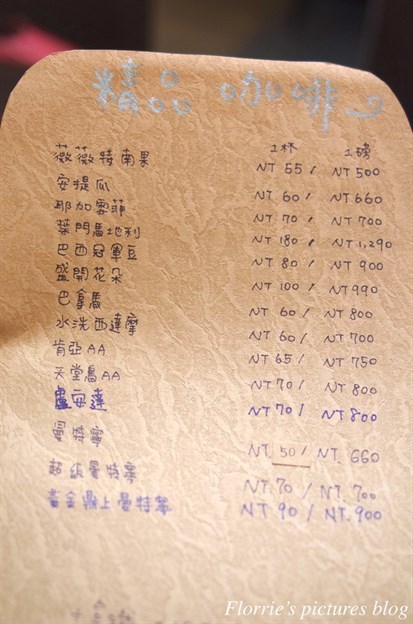 精品咖啡
1杯 1磅
薇薇特南果 NT 55 / NT 500
安提瓜 NT 60 / NT 660
耶加雪菲 NT 70 / NT 700
葉門馬地利 NT 180 / NT 1,290
巴西冠軍豆 NT 80 / NT 900
盛開花朵 NT 100 / NT 990
巴拿馬 NT 60 / NT 800
水洗西達摩 NT 60 / NT 700
肯亞AA NT 65 / NT 750
天堂鳥AA NT 70 / NT 800
盧安達 NT 70 / NT 800
曼特寧 NT. 50 / NT. 660
超級曼特寧 NT. 70 / NT. 700
黃金鼎上曼特寧 NT. 90 / NT. 900
Florrie's pictures blog